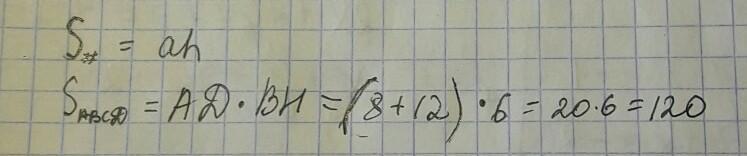 S# = ah
S_ABCD = AD · BH = (8+12) · 6 = 20·6 = 120